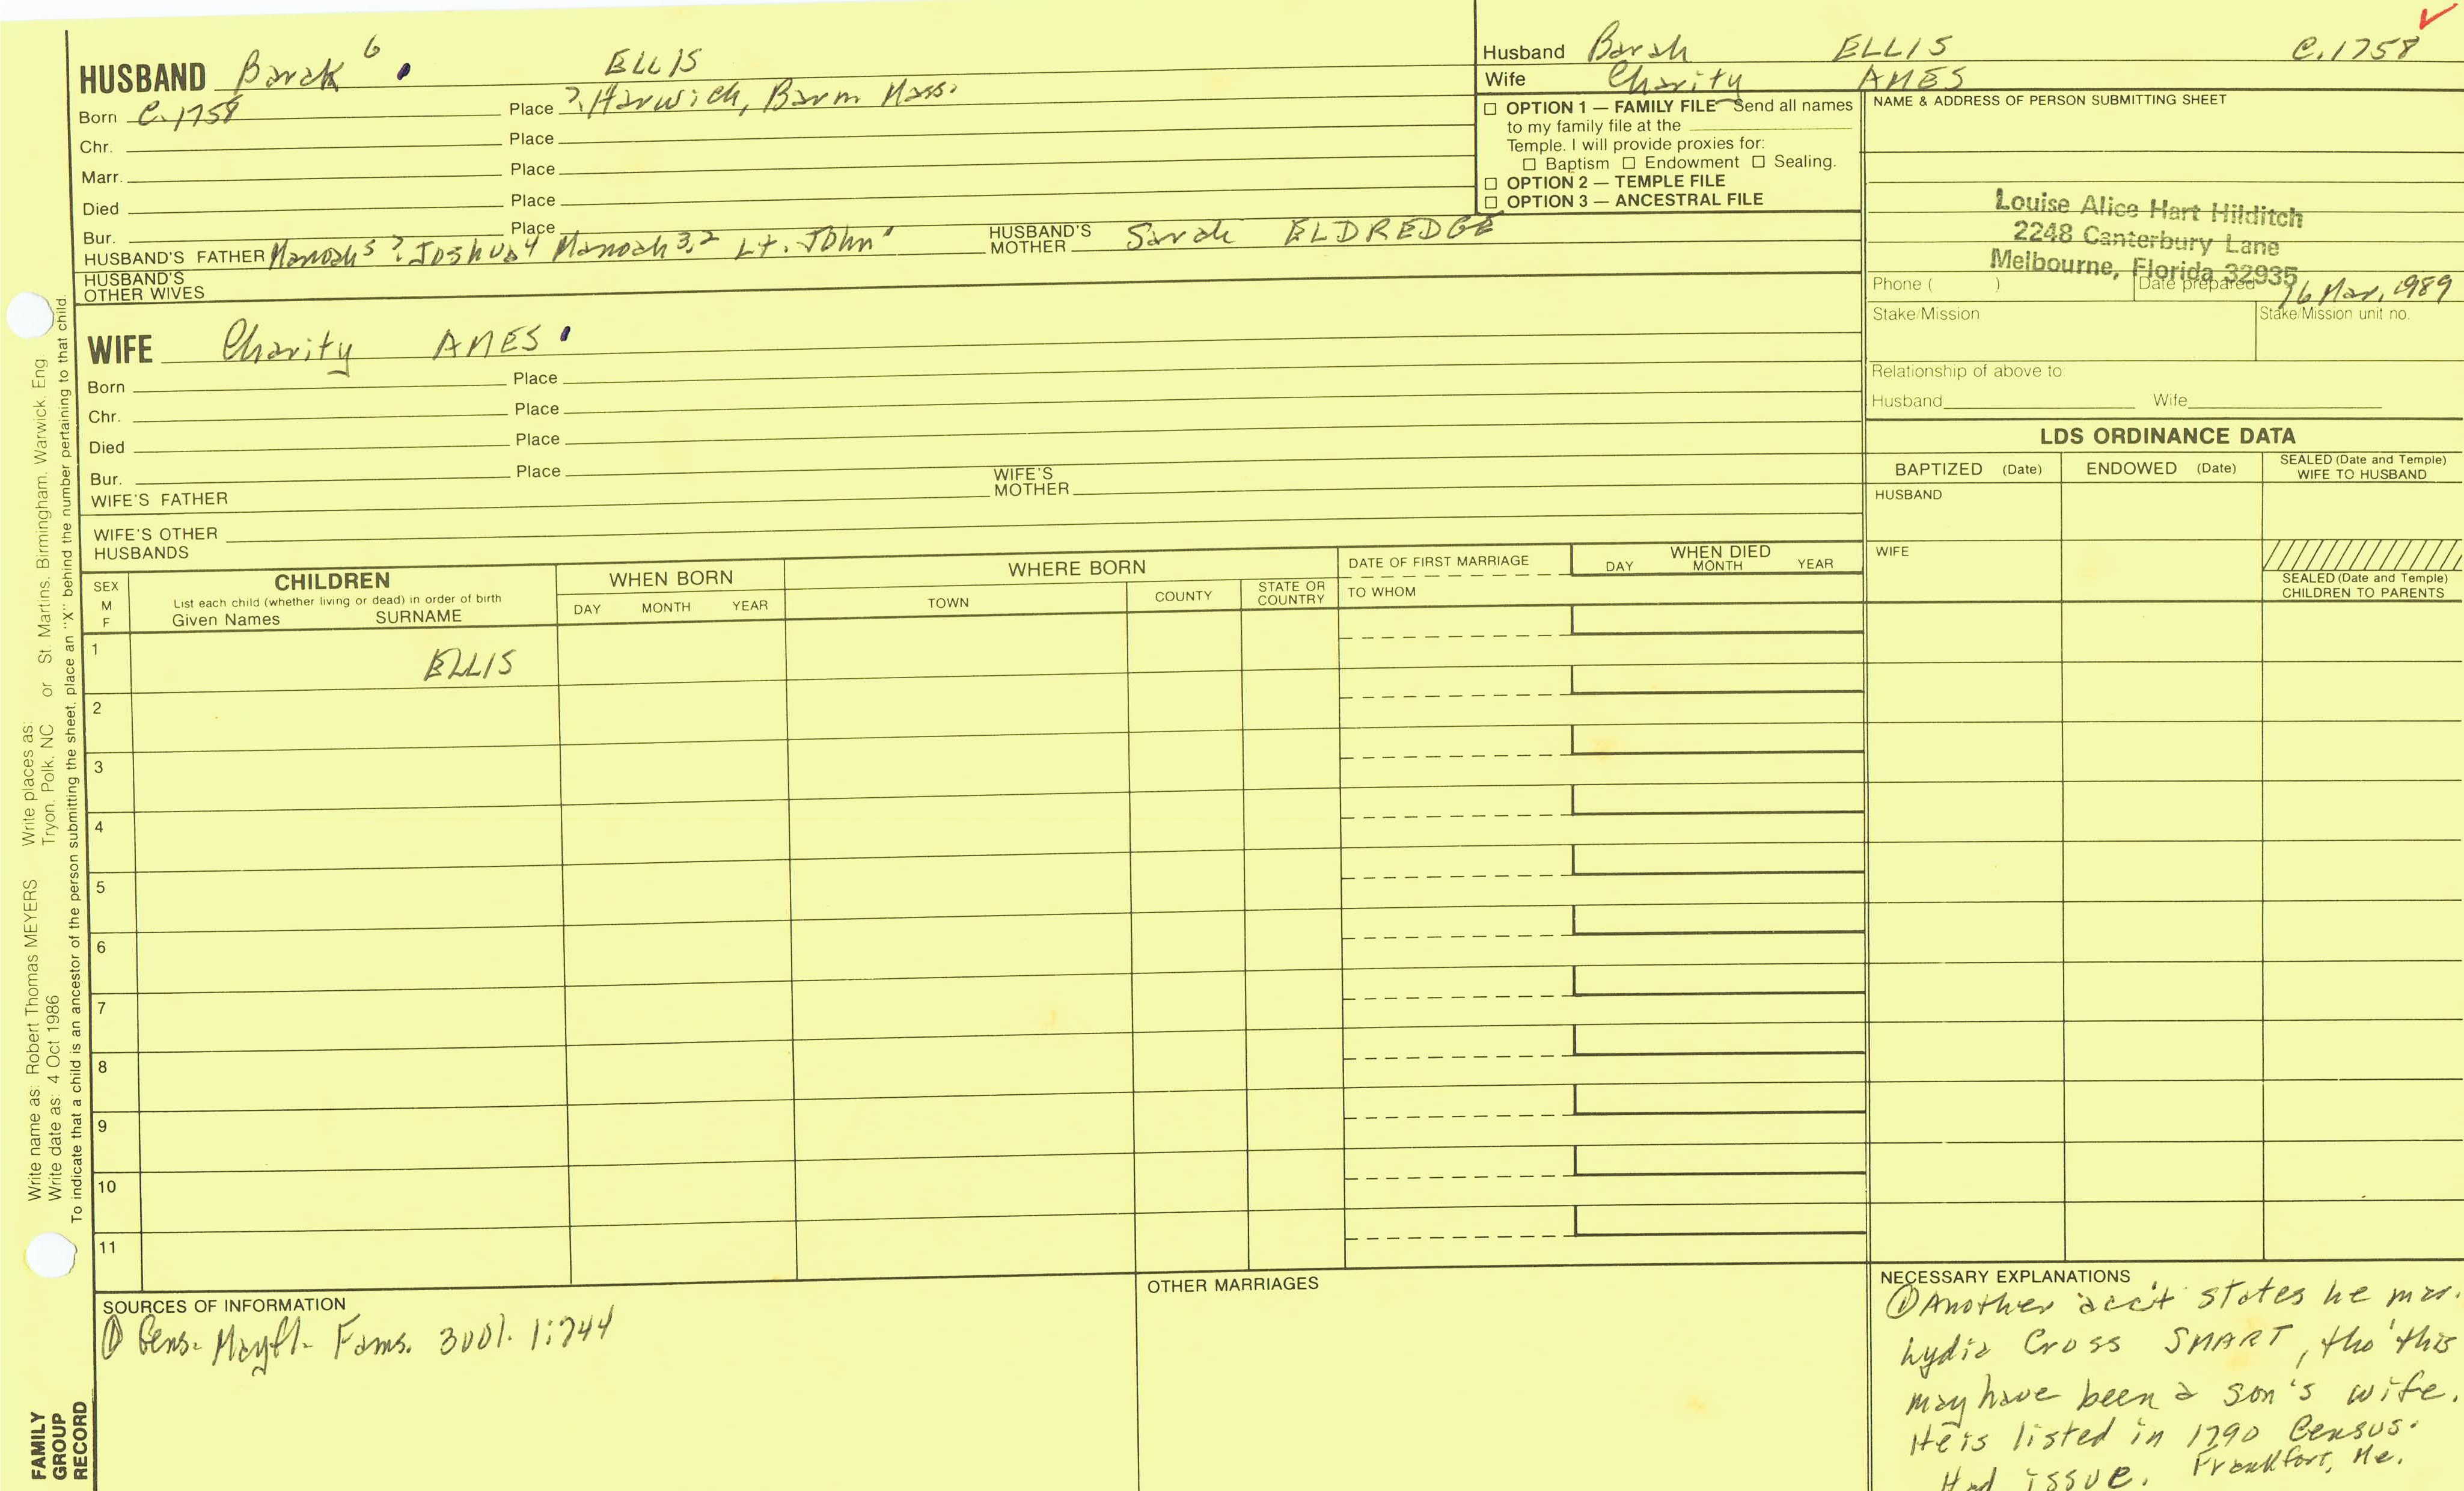 HUSBAND Barak 6 . ELLIS
Born C. 1758 Place ?. Harwich, Barm Mass.
Chr. Place
Marr. Place
Died Place
Bur. Place
HUSBAND'S FATHER Manoah 5 ? Joshua 4 Manoah 3,2 Lt. John 1 HUSBAND'S MOTHER Sarah ELDREDGE
HUSBAND'S OTHER WIVES
WIFE Charity AMES .
Born Place
Chr. Place
Died Place
Bur. Place
WIFE'S FATHER WIFE'S MOTHER
WIFE'S OTHER HUSBANDS
Husband Barah ELLIS C. 1758
Wife Charity AMES
OPTION 1 — FAMILY FILE Send all names
to my family file at the
Temple. I will provide proxies for:
Baptism Endowment Sealing.
OPTION 2 — TEMPLE FILE
OPTION 3 — ANCESTRAL FILE
NAME & ADDRESS OF PERSON SUBMITTING SHEET
Louise Alice Hart Hilditch
2248 Canterbury Lane
Melbourne, Florida 32935
Phone ( ) Date prepared 16 Mar, 1989
Stake/Mission Stake/Mission unit no.
Relationship of above to
Husband Wife
LDS ORDINANCE DATA
BAPTIZED (Date) ENDOWED (Date) SEALED (Date and Temple) WIFE TO HUSBAND
HUSBAND
WIFE
SEALED (Date and Temple) CHILDREN TO PARENTS
SEX M F
CHILDREN
List each child (whether living or dead) in order of birth
Given Names SURNAME
WHEN BORN
DAY MONTH YEAR
WHERE BORN
TOWN COUNTY STATE OR COUNTRY
DATE OF FIRST MARRIAGE
TO WHOM
WHEN DIED
DAY MONTH YEAR
1 ELLIS
2
3
4
5
6
7
8
9
10
11
SOURCES OF INFORMATION
① Gens. Mayfl. Fams. 3001. 1:744
OTHER MARRIAGES
NECESSARY EXPLANATIONS
① Another acc't states he mar.
Lydia Cross SMART, tho' this
may have been a son's wife.
He is listed in 1790 Census.
Had issue. Frankfort, Me.
Write name as: Robert Thomas MEYERS Write places as: St. Martins, Birmingham, Warwick, Eng
Write date as: 4 Oct 1986 Tryon, Polk, NC or
To indicate that a child is an ancestor of the person submitting the sheet, place an "X" behind the number pertaining to that child.
FAMILY
GROUP
RECORD